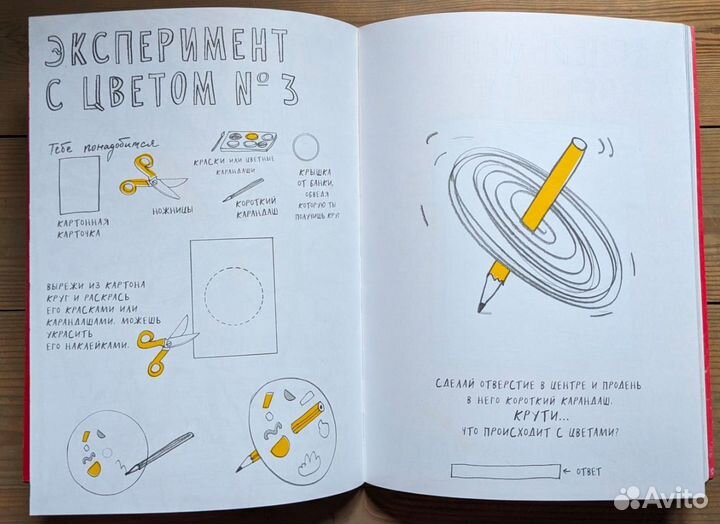 ЭКСПЕРИМЕНТ
С ЦВЕТОМ № 3
Тебе понадобится
КАРТОННАЯ
КАРТОЧКА
НОЖНИЦЫ
КРАСКИ ИЛИ ЦВЕТНЫЕ
КАРАНДАШИ
КОРОТКИЙ
КАРАНДАШ
КРЫШКА
ОТ БАНКИ,
ОБВЕДЯ
КОТОРУЮ ТЫ
ПОЛУЧИШЬ КРУГ
ВЫРЕЖИ ИЗ КАРТОНА
КРУГ И РАСКРАСЬ
ЕГО КРАСКАМИ ИЛИ
КАРАНДАШАМИ. МОЖЕШЬ
УКРАСИТЬ
ЕГО НАКЛЕЙКАМИ.
СДЕЛАЙ ОТВЕРСТИЕ В ЦЕНТРЕ И ПРОДЕНЬ
В НЕГО КОРОТКИЙ КАРАНДАШ.
КРУТИ...
ЧТО ПРОИСХОДИТ С ЦВЕТАМИ?
← ОТВЕТ
Avito